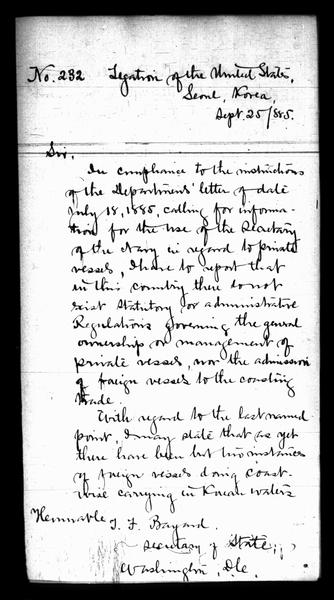 No. 232 Legation of the United States,
Seoul, Korea,
Sept. 25/885.
Sir.
In compliance to the instructions
of the Departments' letter of date
July 18, 1885, calling for informa-
tion for the use of the Secretary
of the Navy in regard to private
vessels, I have to report that
in this country there do not
exist Statutory or administrative
Regulations governing the general
ownership or management of
private vessels, nor the admission
of foreign vessels to the coasting
trade.
With regard to the last named
point, I may state that as yet
there have been but two instances
of foreign vessels doing coast-
wise carrying in Korean waters
Honorable T. F. Bayard.
Secretary of State,
Washington, D.C.